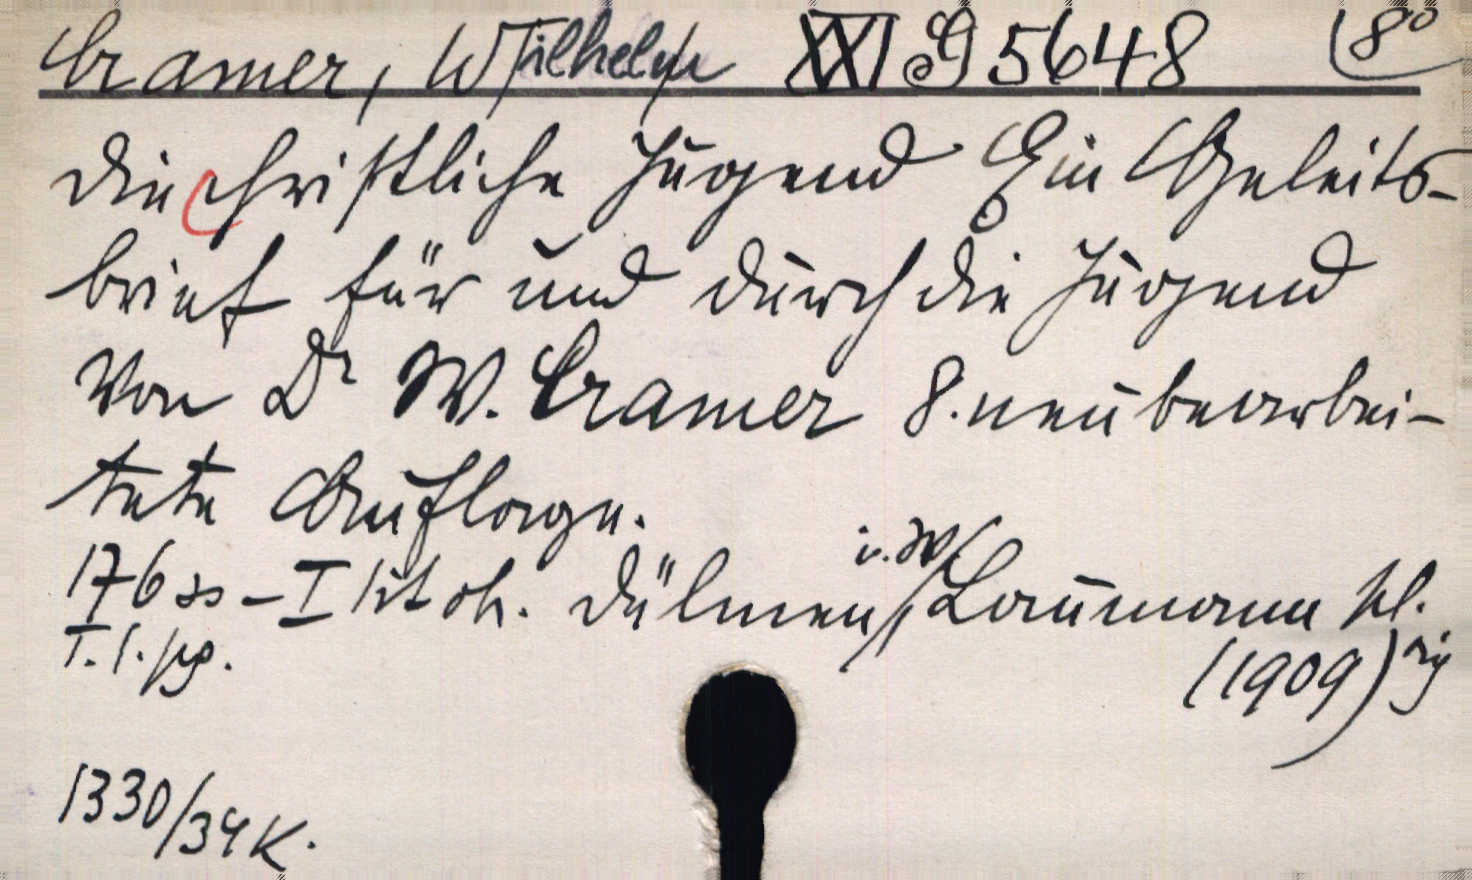 Cramer, Wilhelm XXI G 5648 8°
Die christliche Jugend Ein Geleits-
brief für und durch die Jugend
Von Dr W. Cramer 8. neubearbei-
tete Auflage.
176 ss – I
Dülmen i. W, Laumann
T. l. pg.
(1909)
1330/34 K.